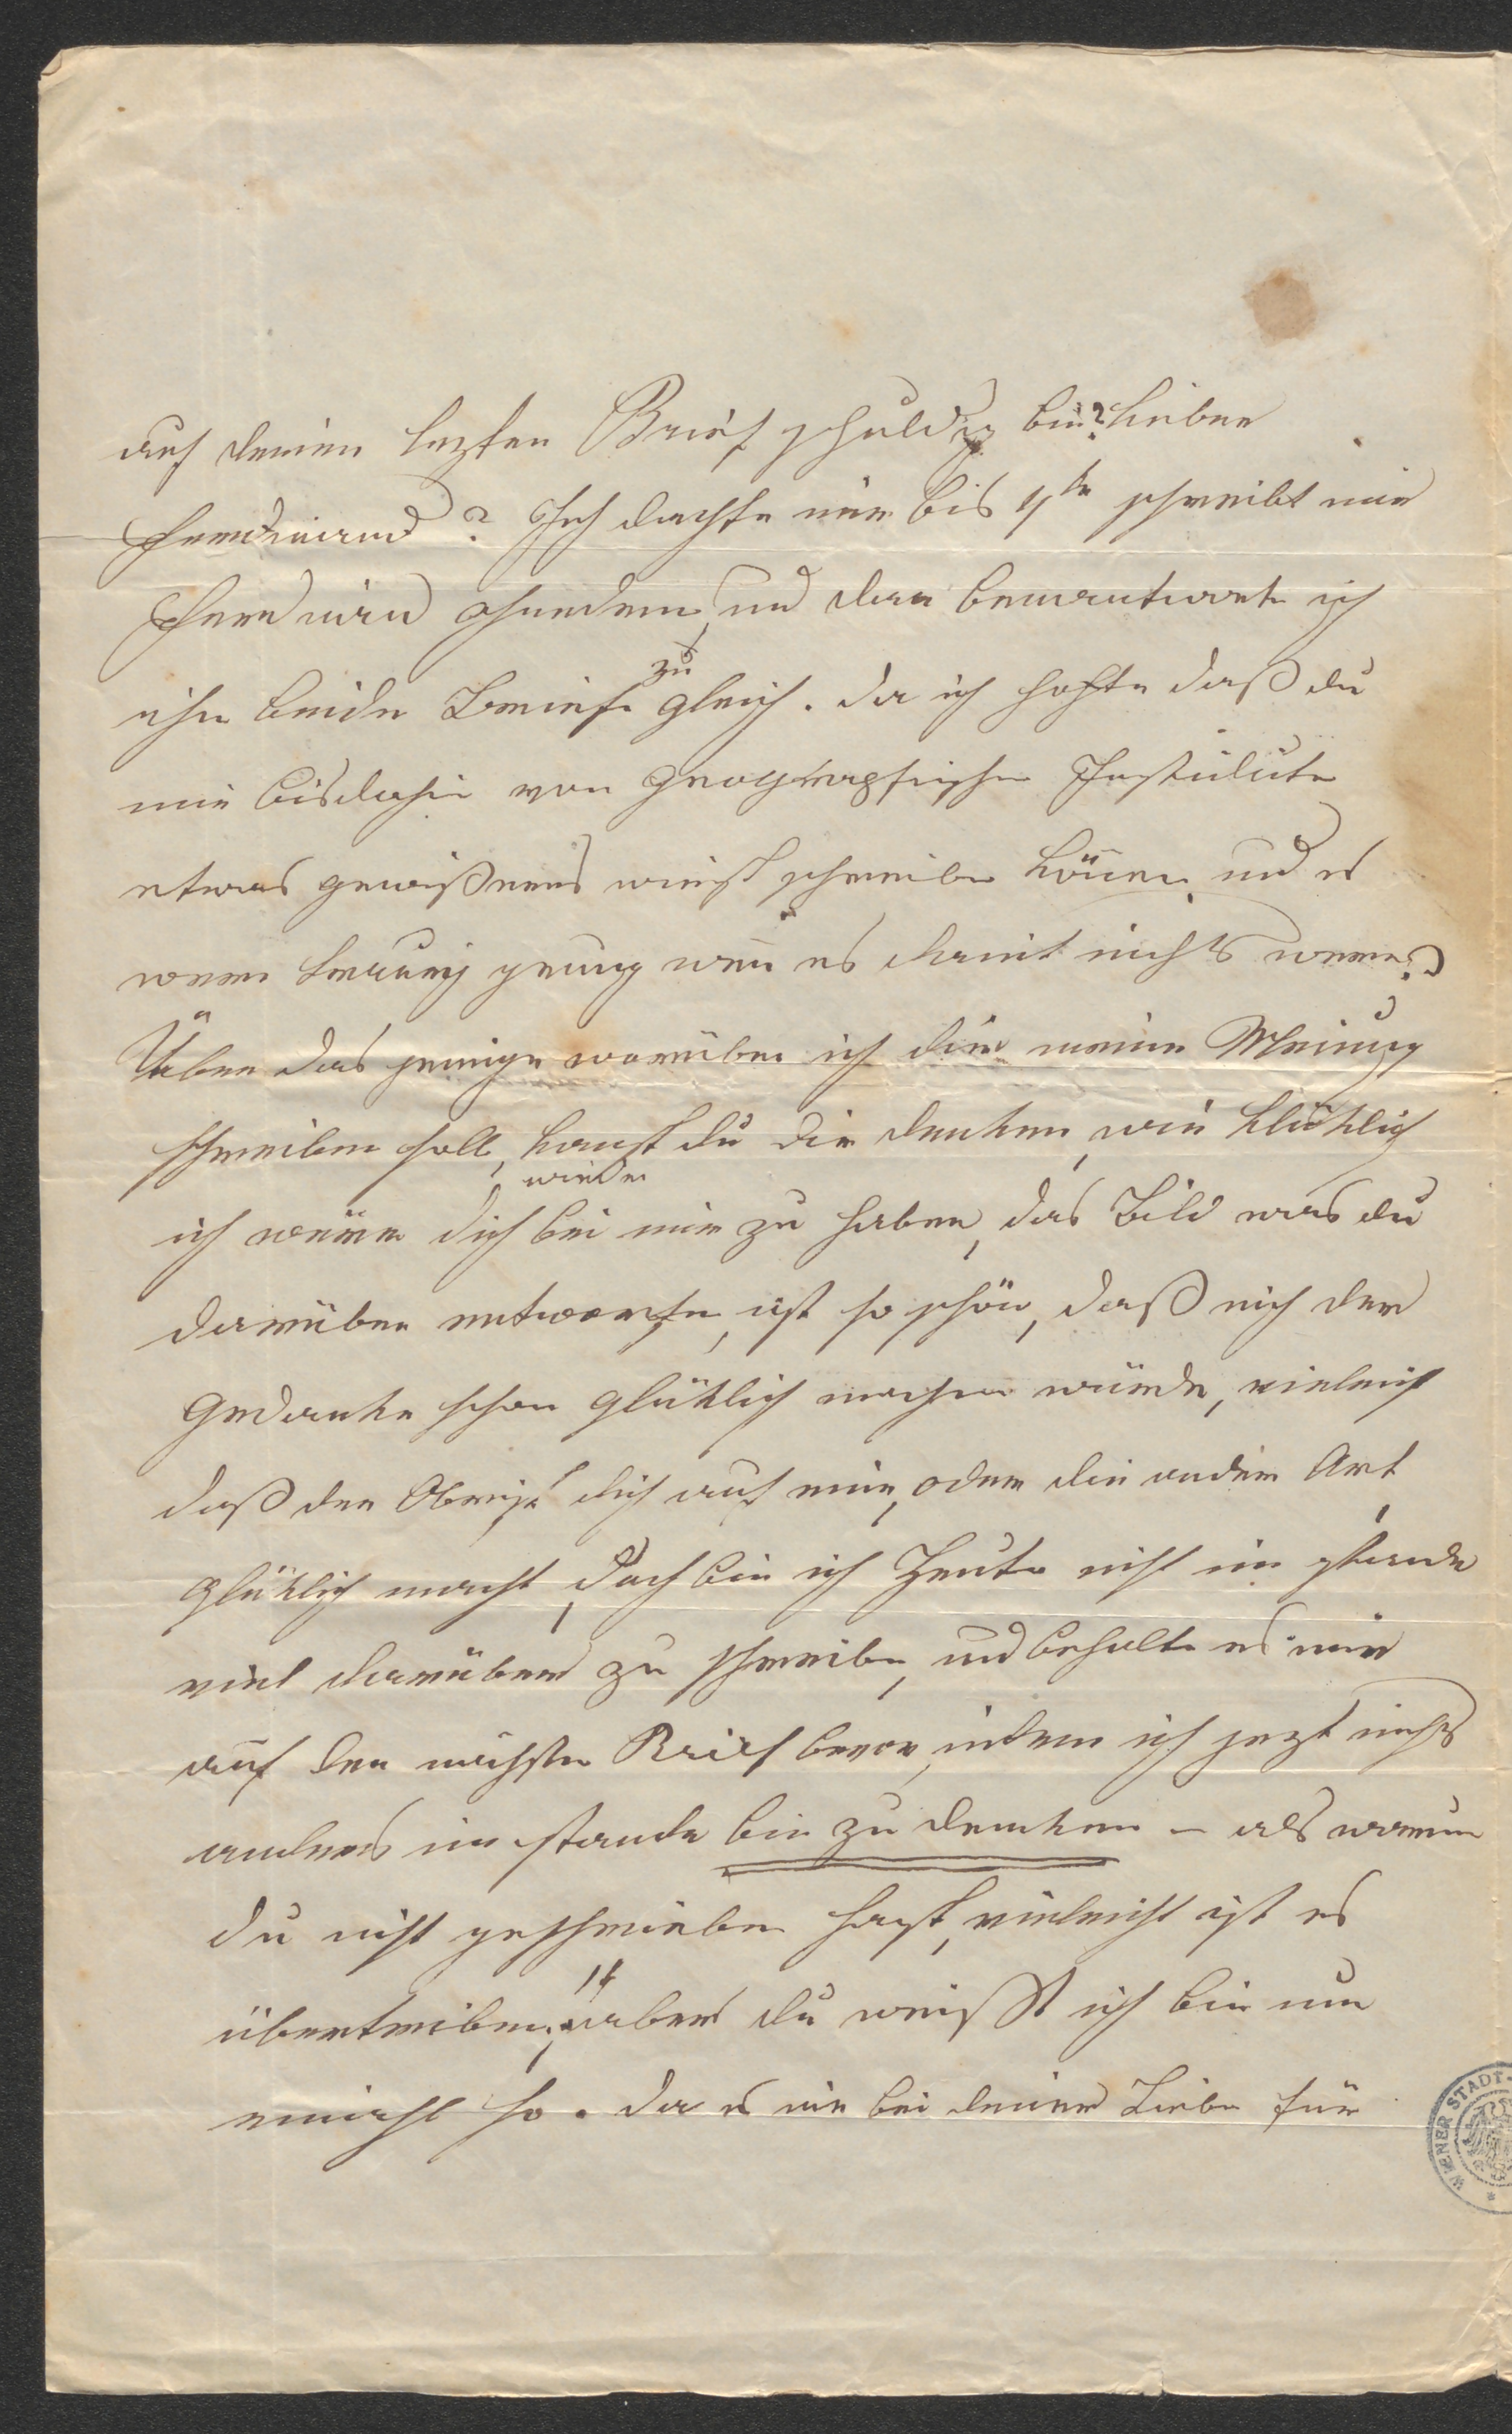 auf deinen lezten Brief schuldig bin? Lieber
Ferdinand? Ich dachte mir bis 4te schreibt mir
Ferdinand ohnedem, und dan beantworte ich
ihn beide Briefe zu gleich. da ich hofte daß du
mir bisdahin von Geographischen Institute
etwas gewißeres wirst schreiben können und es
were traurig genug wen es damit nichts were?
Über das jenige worüber ich dir meine Meinung
schreiben soll, kanst du dir denken, wie klüklich
wieder
ich wäre dich bei mir zu haben, das Bild was du
darüber entworfen, ist so schön, daß mich der
Gedanke schon glüklich machen würde, vieleicht
daß der Obrist dich auf eine, oder die andere Art
glüklich macht, doch bin ich Heute nicht im stande
viel darüber zu schreiben, und behalte es mir
auf den nächsten Brief bevor, indem ich jezt nichts
anders im stande bin zu denken – als warum
du nicht geschrieben hast, vieleicht ist es
übertrieben, aber du weißt ich bin nun
einmahl so. da es mir bei deiner Liebe für
WIENER STADT-